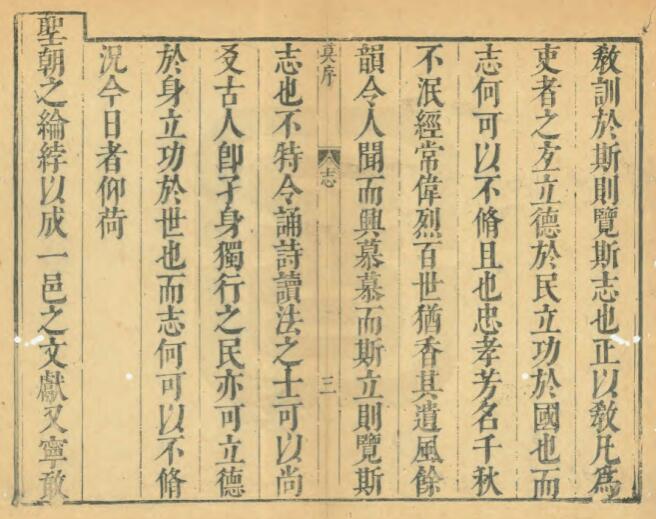 教訓於斯則覽斯志也正以教凡爲
吏者之友立德於民立功於國也而
志何可以不脩且也忠孝芳名千秋
不泯經常偉烈百世猶香其遺風餘
韻令人聞而興慕慕而斯立則覽斯
真序
志
三
志也不特令誦詩讀法之士可以尚
友古人卽孑身獨行之民亦可立德
於身立功於世也而志何可以不脩
況今日者仰荷
聖朝之綸綍以成一邑之文獻又寧敢